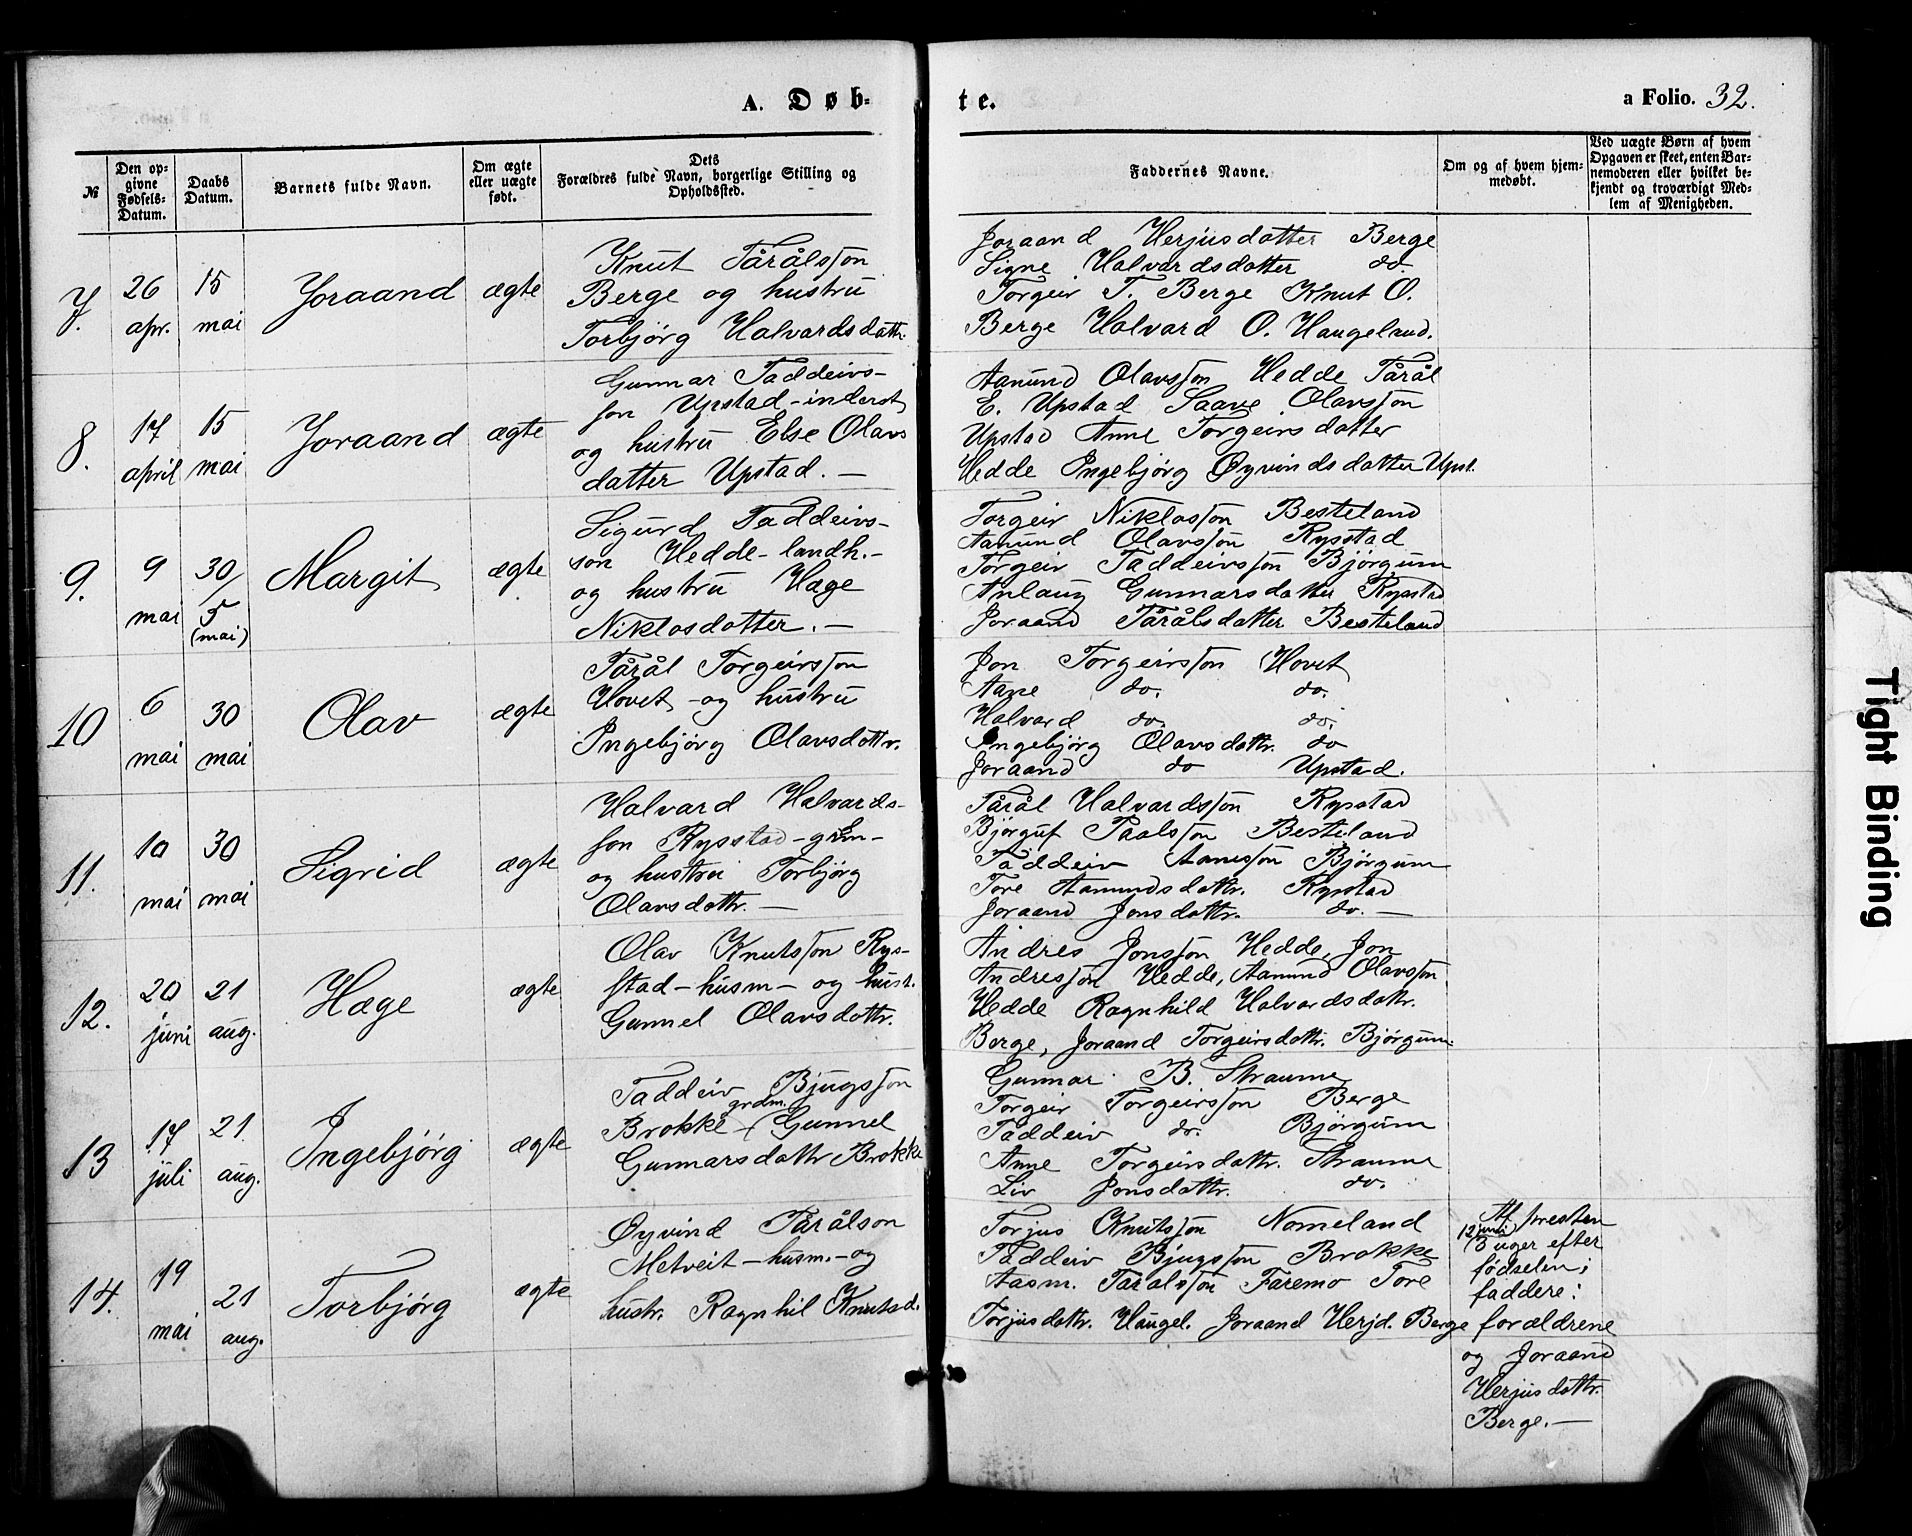 A. Døb-
te.
a Folio. 32.
№
Den op-
givne
Fødsels-
Datum.
Daabs
Datum.
Barnets fulde Navn.
Om ægte
eller uægte
født.
Dets
Forældres fulde Navn, borgerlige Stilling og
Opholdssted.
Faddernes Navne.
Om og af hvem hjem-
medøbt.
Ved uægte Børn af hvem
Opgaven er skeet, enten Bar-
nemoderen eller hvilket be-
kjendt og troværdigt Med-
lem af Menigheden.
7.
26
apr.
15
mai
Joraand
ægte
Knut Tårålsson
Berge og hustru
Torbjørg Halvardsdattr.
Joraand Herjusdatter Berge
Signe Halvardsdatter do
Torgeir T. Berge Knut O.
Berge Halvard O. Haugeland.
8.
17
april
15
mai
Joraand
ægte
Gunnar Taddeivs-
son Upstad - inderst
og hustru Else Olavs
datter Upstad. —
Aanund Olavsson Hedde Tårål
E. Upstad Saave Olavsson
Upstad Anne Torgeirsdatter
Hedde Ingebjørg Øyvindsdatter Upst.
9.
9
mai
30/
5
(mai)
Margit
ægte
Sigurd Taddeivs-
son Hedde - landh. -
og hustru Hæge
Niklosdatter. —
Torgeir Niklosson Besteland
Aanund Olavsson Rysstad
Torgeir Taddeivsson Bjørgum
Anlaug Gunnarsdatter Rysstad
Joraand Tårålsdatter Besteland
10
6
mai
30
mai
Olav
ægte
Tårål Torgeirsson
Hovet - og hustru
Ingebjørg Olavsdattr.
Jon Torgeirsson Hovet
Aane do. do.
Halvard do. do.
Ingebjørg Olavsdattr. do
Joraand do Upstad.
11.
10
mai
30
mai
Sigrid
ægte
Halvard Halvards-
son Rysstad - grdm -
og hustru Torbjørg
Olavsdattr. —
Tårål Halvardsson Rysstad
Bjørguf Paalsson Besteland
Taddeiv Aanesson Bjørgum
Tore Aamundsdattr. Rysstad
Joraand Jonsdattr. do. —
12.
20
juni
21
aug.
Hæge
ægte
Olav Knutsson Rys-
stad - husm - og hust.
Gunnel Olavsdattr.
Andres Jonsson Hedde, Jon
Andresson Hedde, Aamund Olavsson
Hedde Ragnhild Halvardsdattr.
Berge, Joraand Torgeirsdattr. Bjørgum.
13
17
juli
21
aug.
Ingebjørg
ægte
Taddeiv Bjugsson
grdm.
Brokke / Gunnel
Gunnarsdattr Brokke
Gunnar B. Straume
Torgeir Torgeirsson Berge
Taddeiv do. Bjørgum
Anne Torgeirsdattr. Straume
Liv Jonsdattr. do.
14.
19
mai
21
aug.
Torbjørg
ægte
Øyvind Tårålson
Metveit - husm. - og
hustr. Ragnhil Knutsd.
Torjus Knutsson Nomeland
Taddeiv Bjugsson Brokke
Aasm. Taralsson Faremo Tore
Torjusdattr. Haugel. Joraand Herjd. Berge
Af presten
12 juni
3 uger efter
fødselen;
faddere:
forældrene
og Joraand
Herjusdattr.
Berge. —
Tight Binding